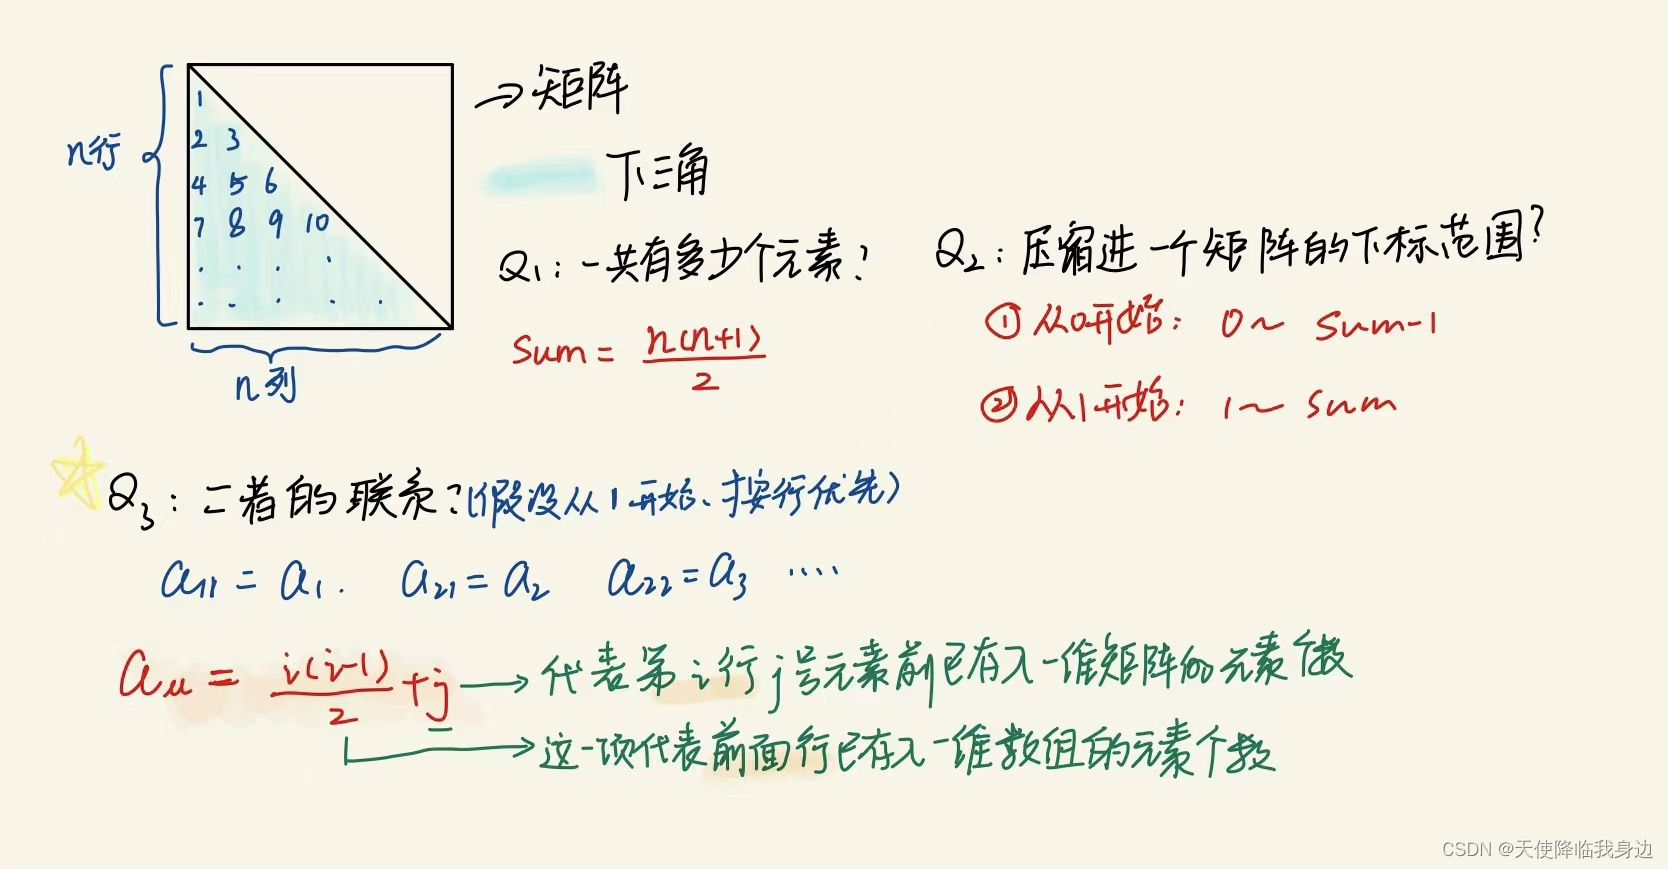 n行
1
2 3
4 5 6
7 8 9 10
. . . .
. . . . .
n列
→矩阵
下三角
Q1:一共有多少个元素?
sum = n(n+1)/2
Q2:压缩进一个矩阵的下标范围?
①从0开始: 0~ sum-1
②从1开始: 1~ sum
Q3:二者的联系?(假设从1开始、按行优先)
a11 = a1. a21 = a2 a22 = a3 ····
= i(i-1)/2 + j → 代表第i行j号元素前已存入一维矩阵的元素个数
→ 这一项代表前面行已存入一维数组的元素个数
CSDN @天使降临我身边